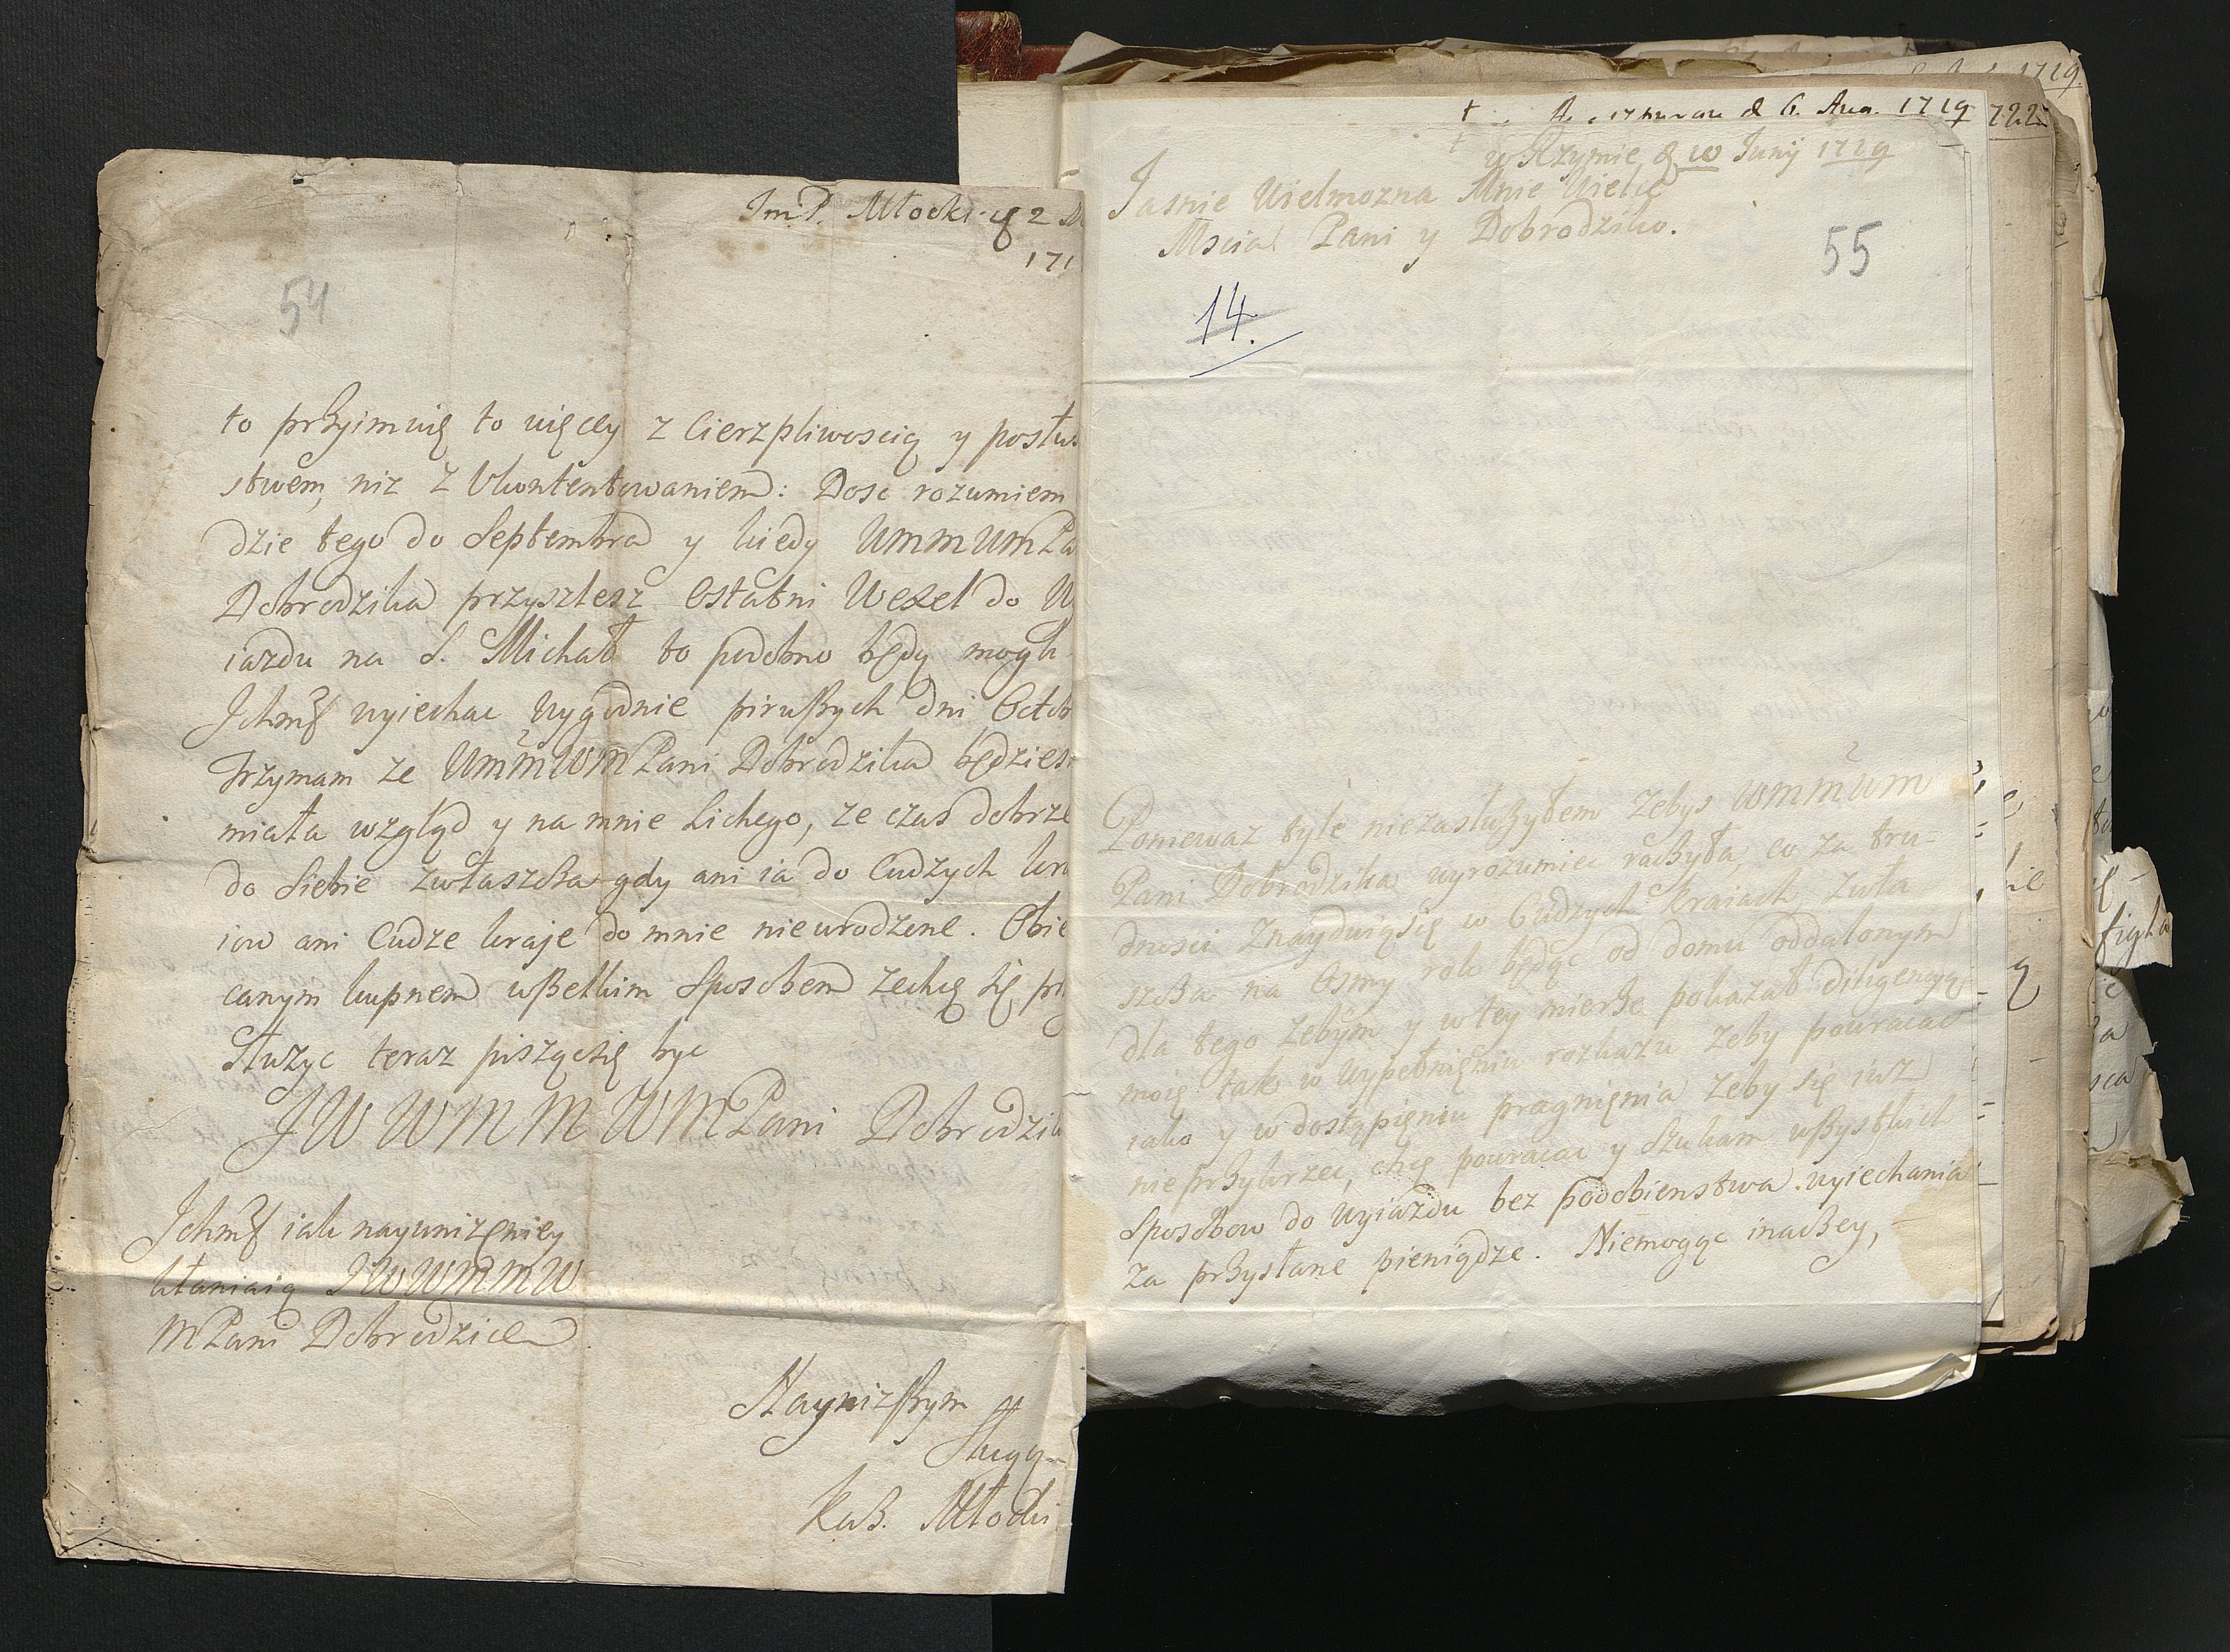 ImP. Młocki 2
171
54
to przyimuię to więcey z Cierzpliwoscią y posłu
stwem, niz z Ukontentowaniem: Dosc rozumiem
dzie tego do Septembra y kiedy WMMWMPa
Dobrodzika przyszlesz Ostatni Wexel do W
iazdu na S. Michał to podobno będą mogli
Ichmść wyiechac wygodnie pirwßych dni Octob
Trzymam ze WMMWMPani Dobrodzika będziesz
miała wzgląd y na mnie Lichego, ze czas dobrze
do Siebie zwłaszcza gdy ani ia do Cudzych kra
iow ani Cudze kraje do mnie nieurodzone. Obie
canym kupnem wßelkim Sposobem zechcę się prz
Służyc teraz pisząc się byc
JWWMMWMPani Dobrodzik
Ichmść iak nayunizęniey
kłaniaią JWWMMW
MPani Dobrodzice
Naynizßym
Sługą
Kaß. Młocki
1719
d 6. Aug. 1719 722
w Rzymie d 10 Junij 1719
Jasnie Wielmozna Mnie Wielce
Mscia Pani y Dobrodziko.
55
14.
Poniewaz tyle niezasłużyłem zebys WMMWM
Pani Dobrodzika wyrozumiec raczyła, co za tru-
dnosci znayduią się w Cudzych Kraiach, zwła
szcza na Osmy rok będąc od domu oddalonym
dla tego zebym y w tey mierze pokazał diligencyą
moię tak w wypełnięniu rozkazu zeby powracac
iako y w dostąpięniu pragnięnia zeby się iuz
nieprzykrzec, chcę powracac y szukam wßystkich
Sposobow do wyiazdu bez podobienstwa wyiechania
za przysłane pieniądze. Niemogąc inaczey,